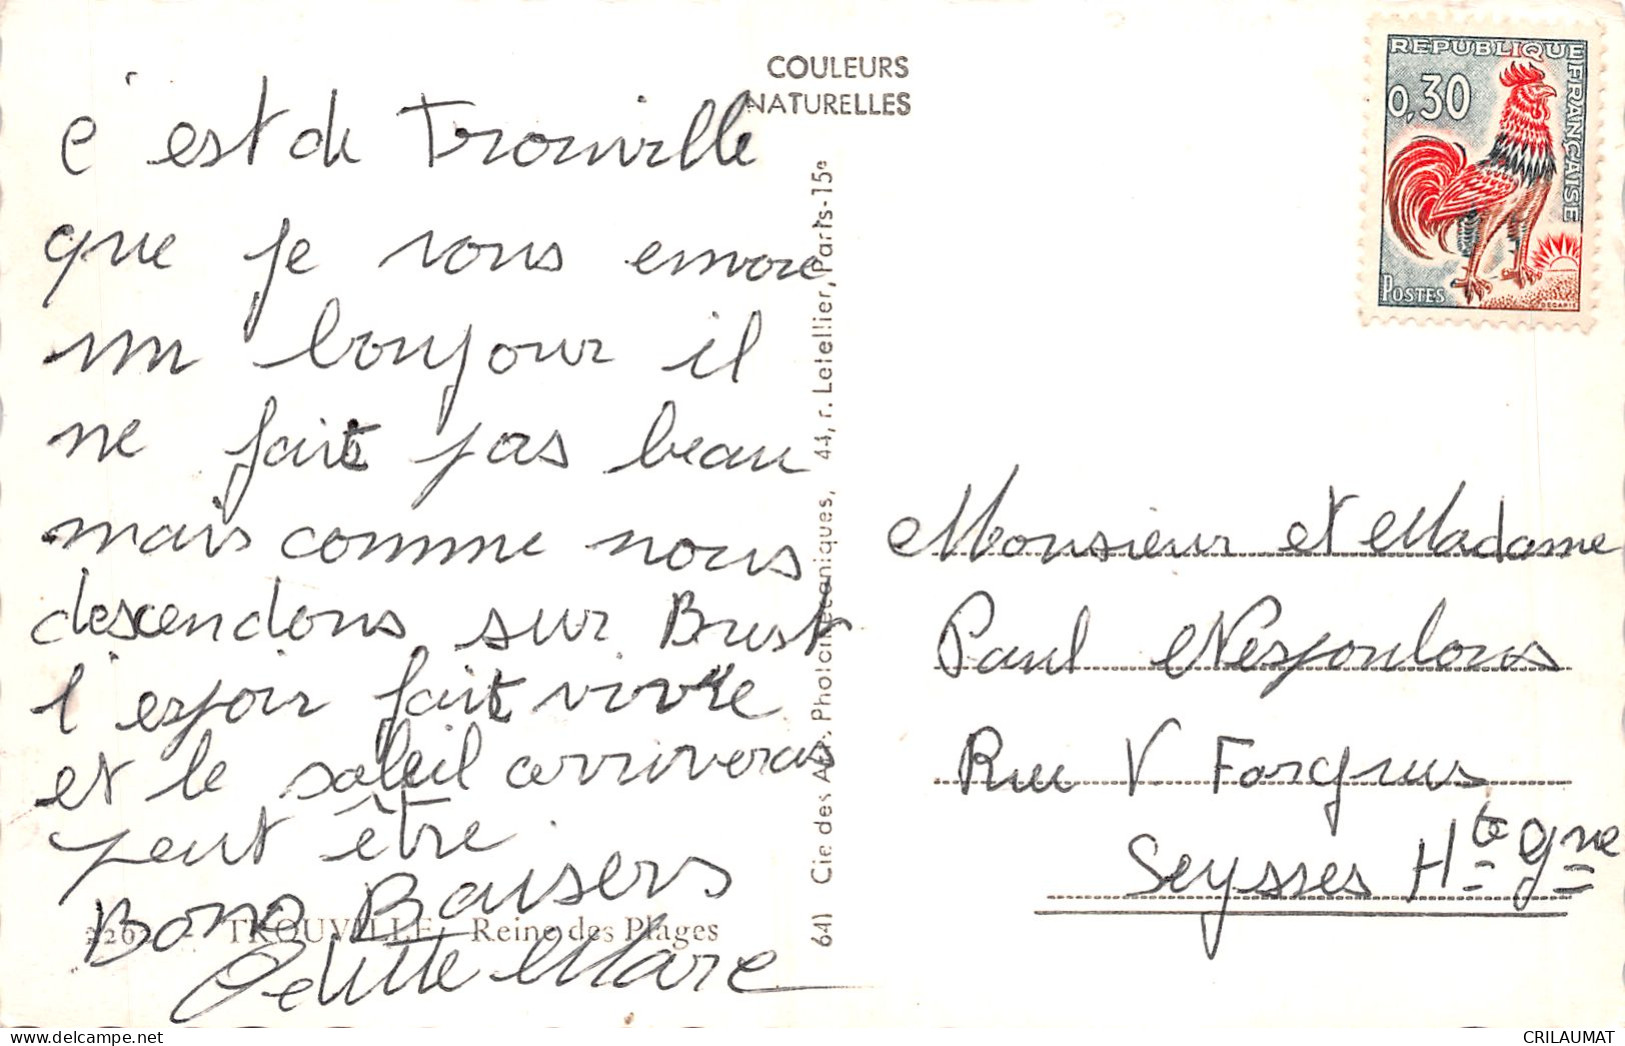 c'est de Trouville
que je vous envoie
un bonjour il
ne fait pas beau
mais comme nous
descendons sur Brest
l'espoir fait vivre
et le soleil arriveras
peut être
Bons Baisers
Odette Marc
2262 - TROUVILLE - Reine des Plages
COULEURS
NATURELLES
641 Cie des Arts Photomécaniques, 44, r. Letellier, Paris-15e
REPUBLIQUE FRANÇAISE
0,30
POSTES
DECARIS
Monsieur et Madame
Paul Nespoulous
Rue V
Seysses Hte Gne
CRILAUMAT